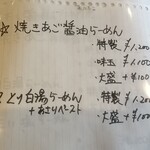 ☆ 焼きあご醤油らーめん
・特製 ¥1,200
・味玉 ¥1,100
・大盛 +¥100
とり白湯らーめん
+あさりペースト
・特製 ¥1,200
・大盛 +¥100